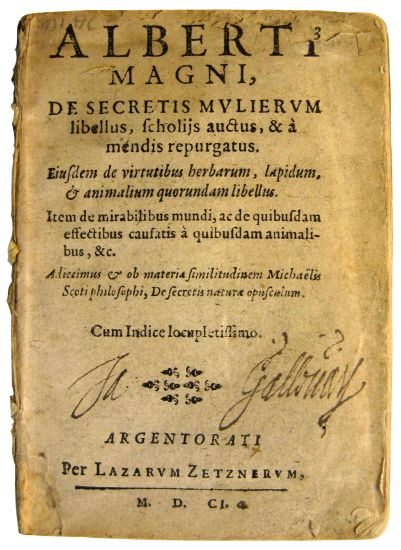 ALBERTI
MAGNI,
DE SECRETIS MVLIERVM
libellus, scholijs auctus, & à
mendis repurgatus.
Eiusdem de virtutibus herbarum, lapidum,
& animalium quorundam libellus.
Item de mirabilibus mundi, ac de quibusdam
effectibus causatis à quibusdam animali-
bus, &c.
Adiecimus & ob materiæ similitudinem Michaëlis
Scoti philosophi, De secretis naturæ opusculum.
Cum Indice locupletissimo.
Ja Gallouay
ARGENTORATI
Per LAZARVM ZETZNERVM,
M. D. CI.